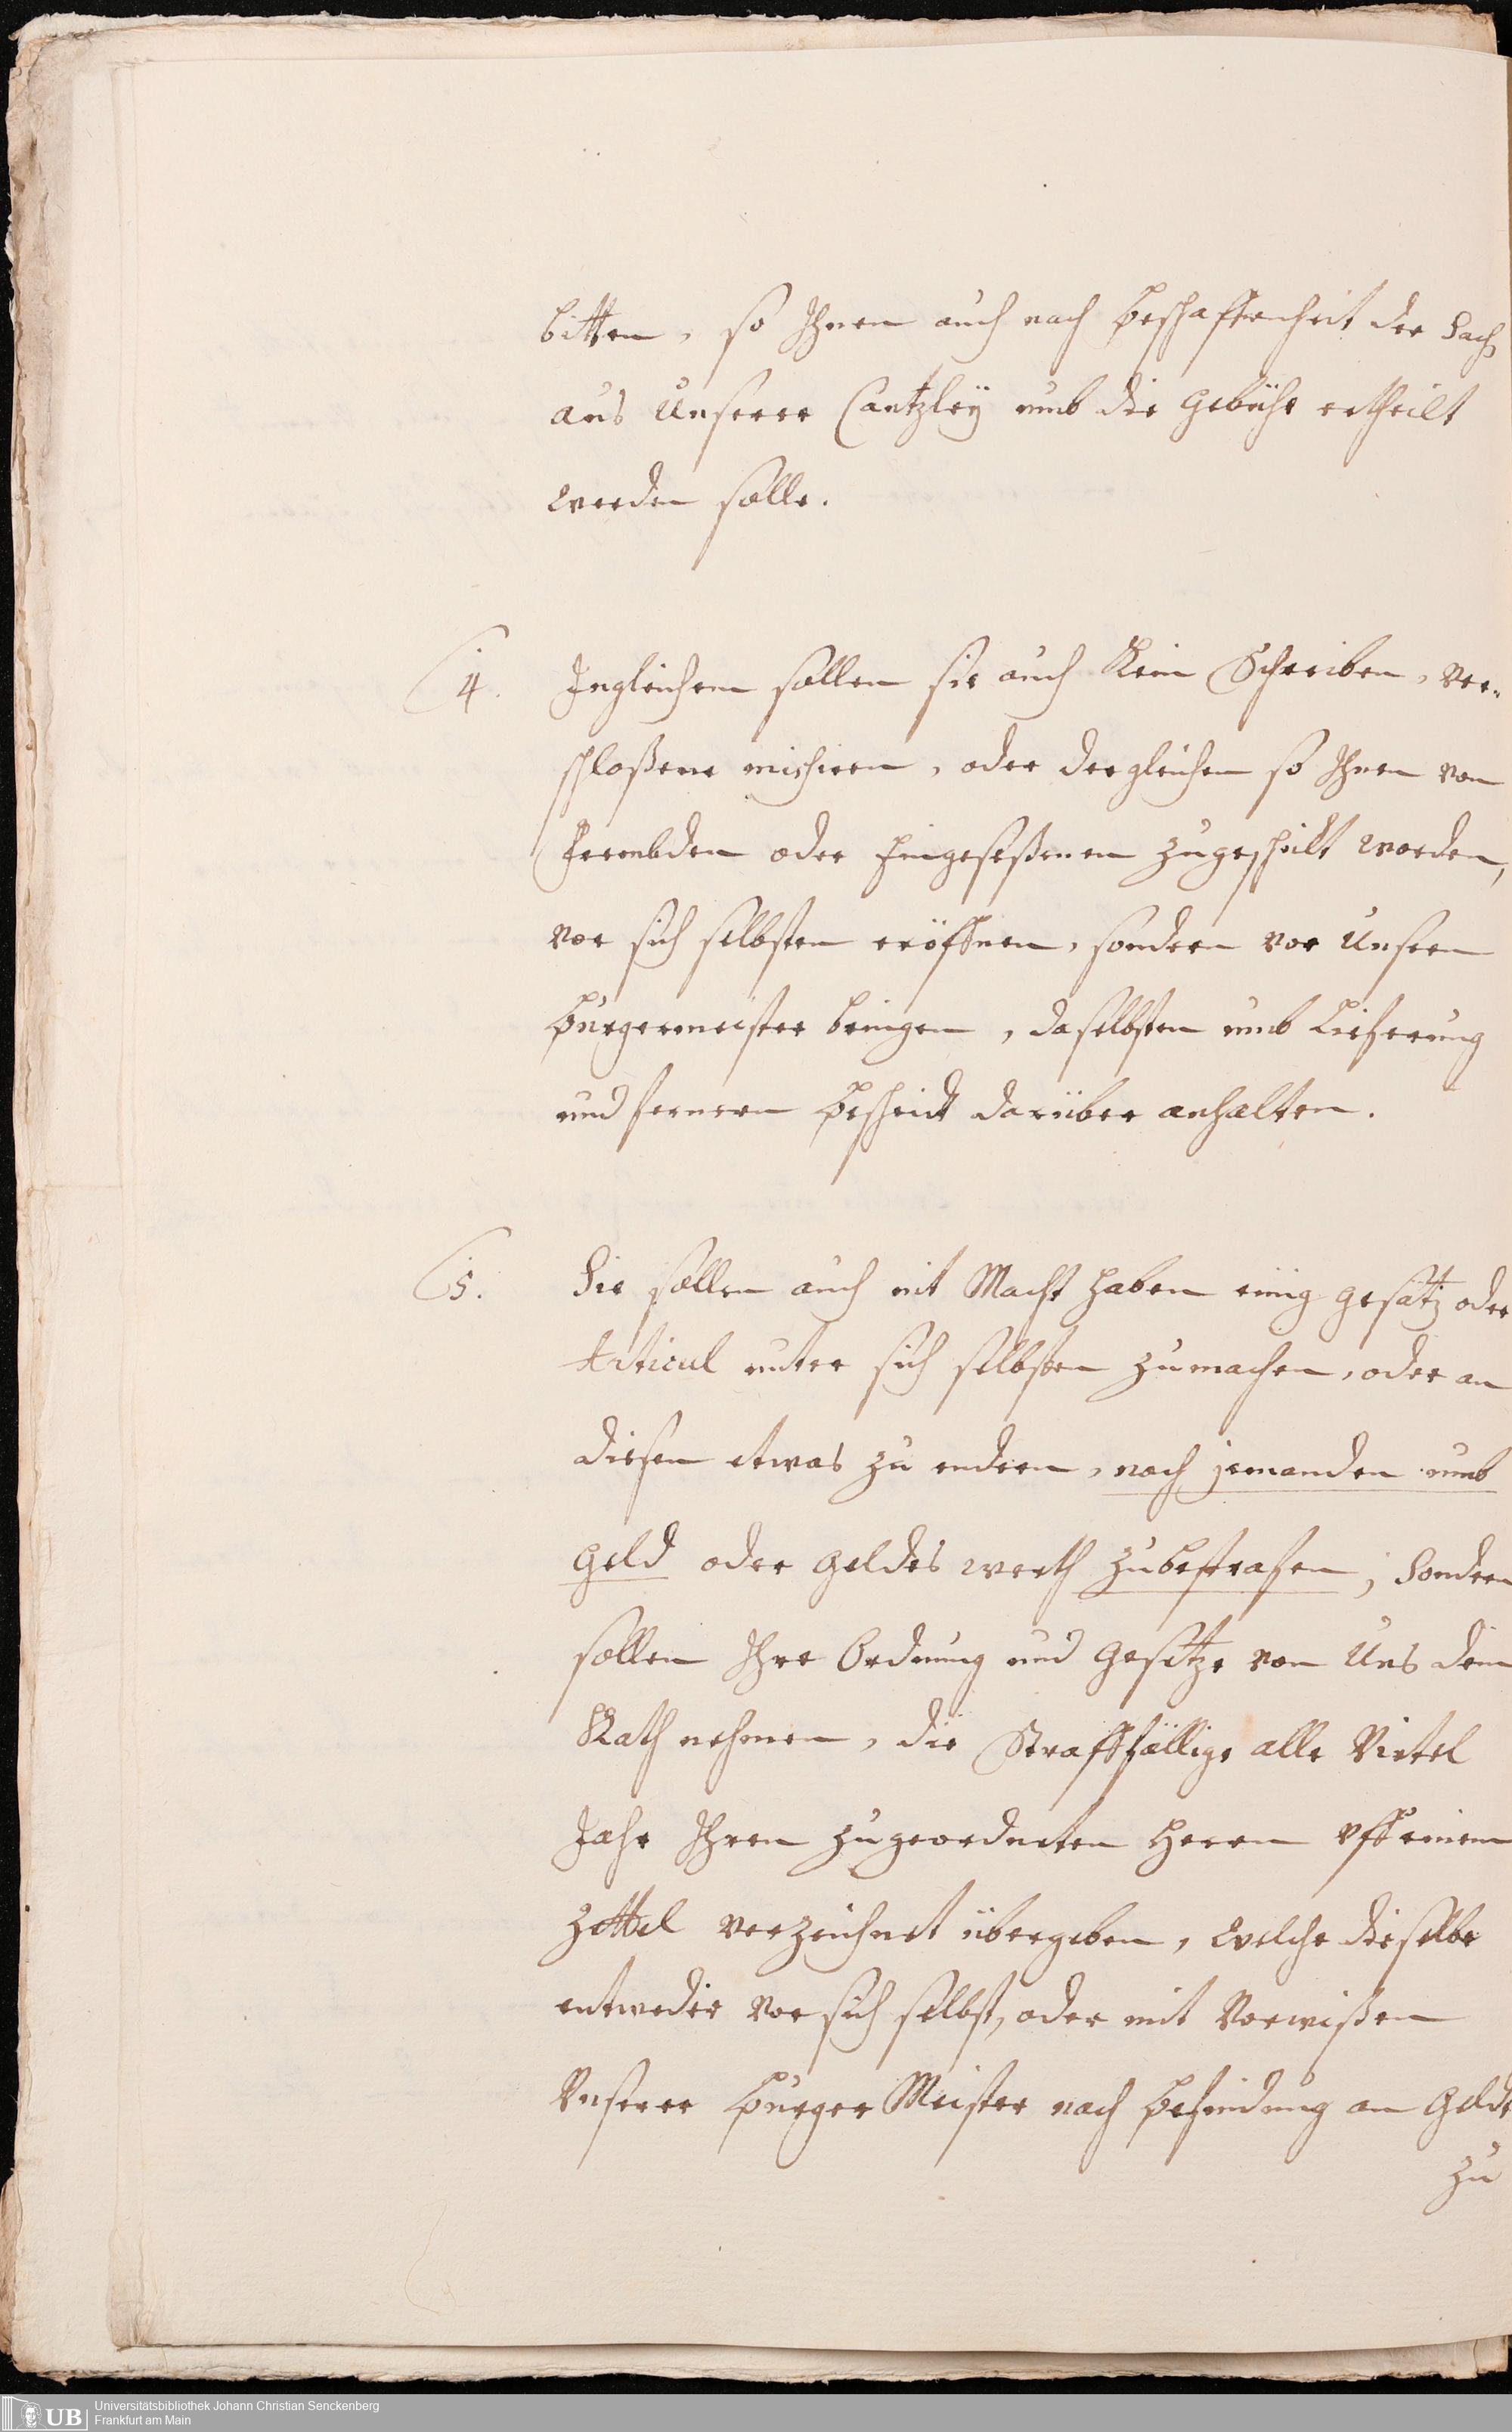 bitten, so Ihnen auch nach beschaffenheit der Sach
aus Unserer Cantzleÿ umb die gebühr ertheilt
werden solle.
4. Ingleichem sollen sie auch kein Schreiben, ver-
schloßene missiven, oder dergleichen so Ihnen von
Frembden oder Eingeseßenen zugeschickt worden,
vor sich selbsten eröffnen, sondern vor Unsern
burgermeister bringen, daselbsten umb Lieferung
und fernern bescheidt darüber anhalten.
5. Sie sollen auch nit Macht haben einig gesätz oder
Articul unter sich selbsten zumachen, oder an
diesen etwas zu endern, noch jemanden umb
geld oder geldes werth zubestrafen, Sondern
sollen Ihre Ordnung und gesetze von Uns dem
Rath nehmen, die Strafffällige alle Viertel
Jahr Ihren zugeordneten Herrn uff einem
Zettel verzeichnet übergeben, welche dieselbe
entweder vor sich selbst, oder mit Vorwißen
Unserer burger Meister nach befindung an Geldt
zu
Universitätsbibliothek Johann Christian Senckenberg
Frankfurt am Main
UB